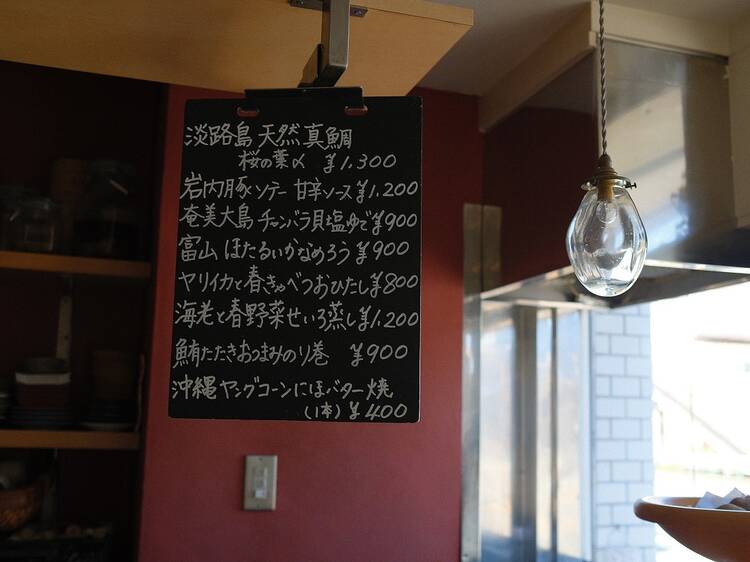 淡路島 天然 真鯛
桜の葉〆 ¥1.300
岩内豚ソテー 甘辛ソース¥1.200
奄美大島 チャンバラ貝塩ゆで¥900
富山 ほたるいかなめろう ¥900
ヤリイカと春きゃべつおひたし¥800
海老と春野菜せいろ蒸し¥1.200
鮪たたきおつまみのり巻 ¥900
沖縄ヤングコーンにほバター焼
(1本) ¥400